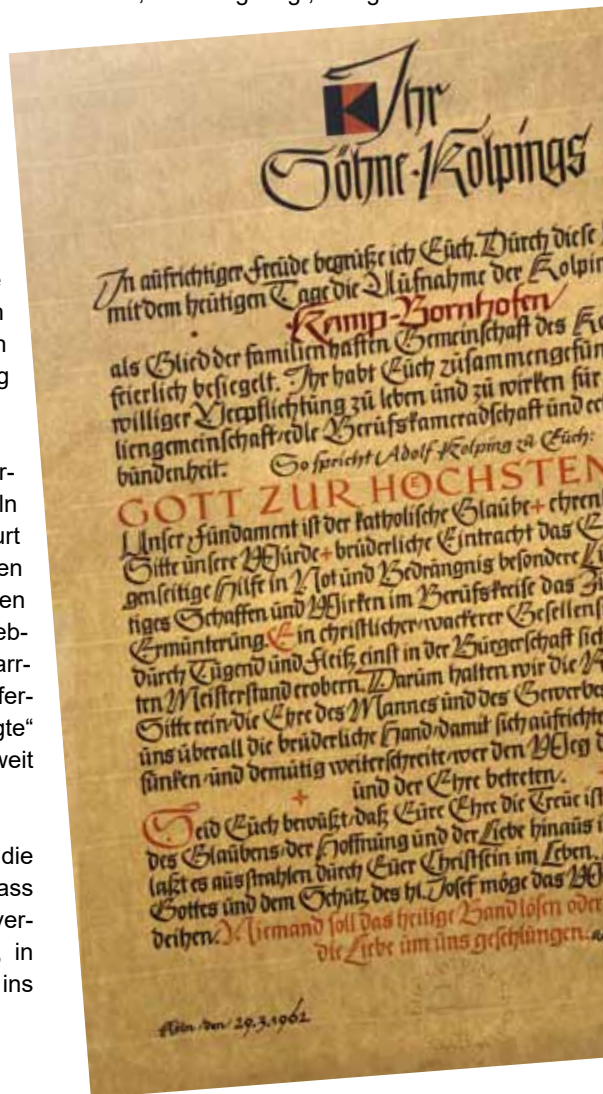 e
n
n
g
r-
ln
urt
en
en
eb-
arr-
fer-
gte“
weit
die
ass
ver-
in
ins
K Ihr
Söhne Kolpings
In aufrichtiger Freude begrüße ich Euch. Durch diese
mit dem heutigen Tage die Aufnahme der Kolpin
Kamp-Bornhofen
als Glied der familienhaften Gemeinschaft des Ko
feierlich besiegelt. Ihr habt Euch zusammengefun
williger Verpflichtung zu leben und zu wirken für
liengemeinschaft, edle Berufskameradschaft und ec
bundenheit: So spricht Adolf Kolping zu Euch:
GOTT ZUR HÖCHSTEN
Unser Fundament ist der katholische Glaube + ehren
Sitte unsere Würde + brüderliche Eintracht das
genseitige Hilfe in Not und Bedrängnis besondere
tiges Schaffen und Wirken im Berufskreise das
Ermunterung. Ein christlicher, wackerer Gesellens
durch Tugend und Fleiß, einst in der Bürgerschaft sich
ten Meisterstand erobern. Darum halten wir die
Sitte rein, die Ehre des Mannes und des Gewerbe
uns überall die brüderliche Hand, damit sich aufrichte
sunken, und demütig weiterschreite, wer den Weg d
und der Ehre betreten.
Seid Euch bewußt, daß Eure Ehre die Treue ist
des Glaubens, der Hoffnung und der Liebe hinaus i
laßt es ausstrahlen durch Euer Christsein im Leben.
Gottes und dem Schutz des hl. Josef möge das
deihen. Niemand soll das heilige Band lösen oder
die Liebe um uns geschlungen.
Köln, den 29.3.1962